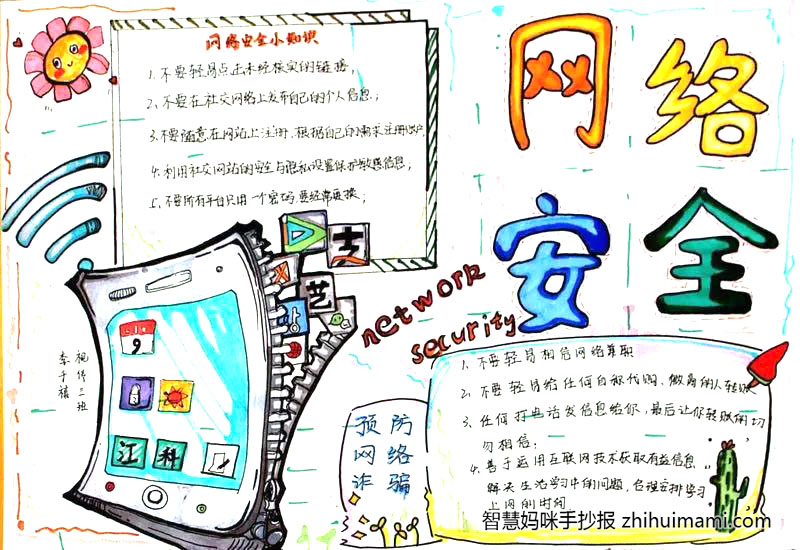 网络安全小知识
1、不要轻易点击未经核实的链接；
2、不要在社交网络上发布自己的个人信息；
3、不要随意在网站上注册、根据自己的需求注册账户
4、利用社交网站的安全与隐私设置保护敏感信息；
5、不要所有平台只用一个密码,要经常更换；
网络
安全
network
security
艺
9
江 科
视传二班
李子禧
预防
网络
诈骗
1、不要轻易相信网络兼职
2、不要轻易给任何自称代购、微商的人转账
3、任何打电话发信息给你,最后让你转账的切
勿相信；
4、善于运用互联网技术获取有益信息
解决生活学习中的问题,合理安排学习
上网的时间
智慧妈咪手抄报 zhihuimami.com